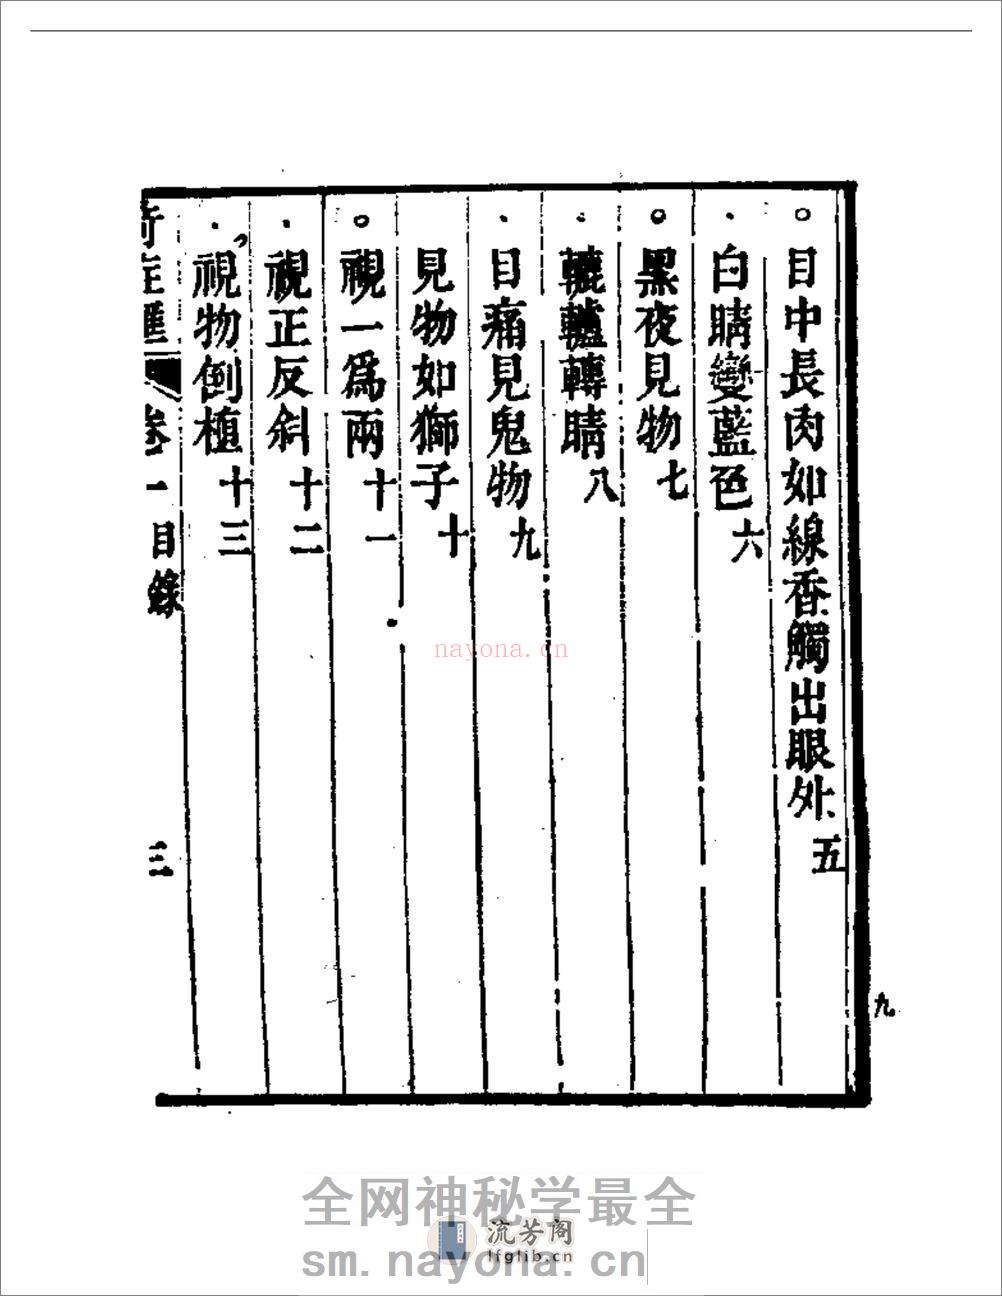 目中長肉如線香觸出眼外五
白睛變藍色六
黑夜見物七
轆轤轉睛八
目痛見鬼物九
見物如獅子十
視一爲兩十一
視正反斜十二
視物倒植十三
奇症匯 卷一目錄 三
九
nayona.cn
全网神秘学最全
流芳阁
lfglib.cn
sm.nayona.cn